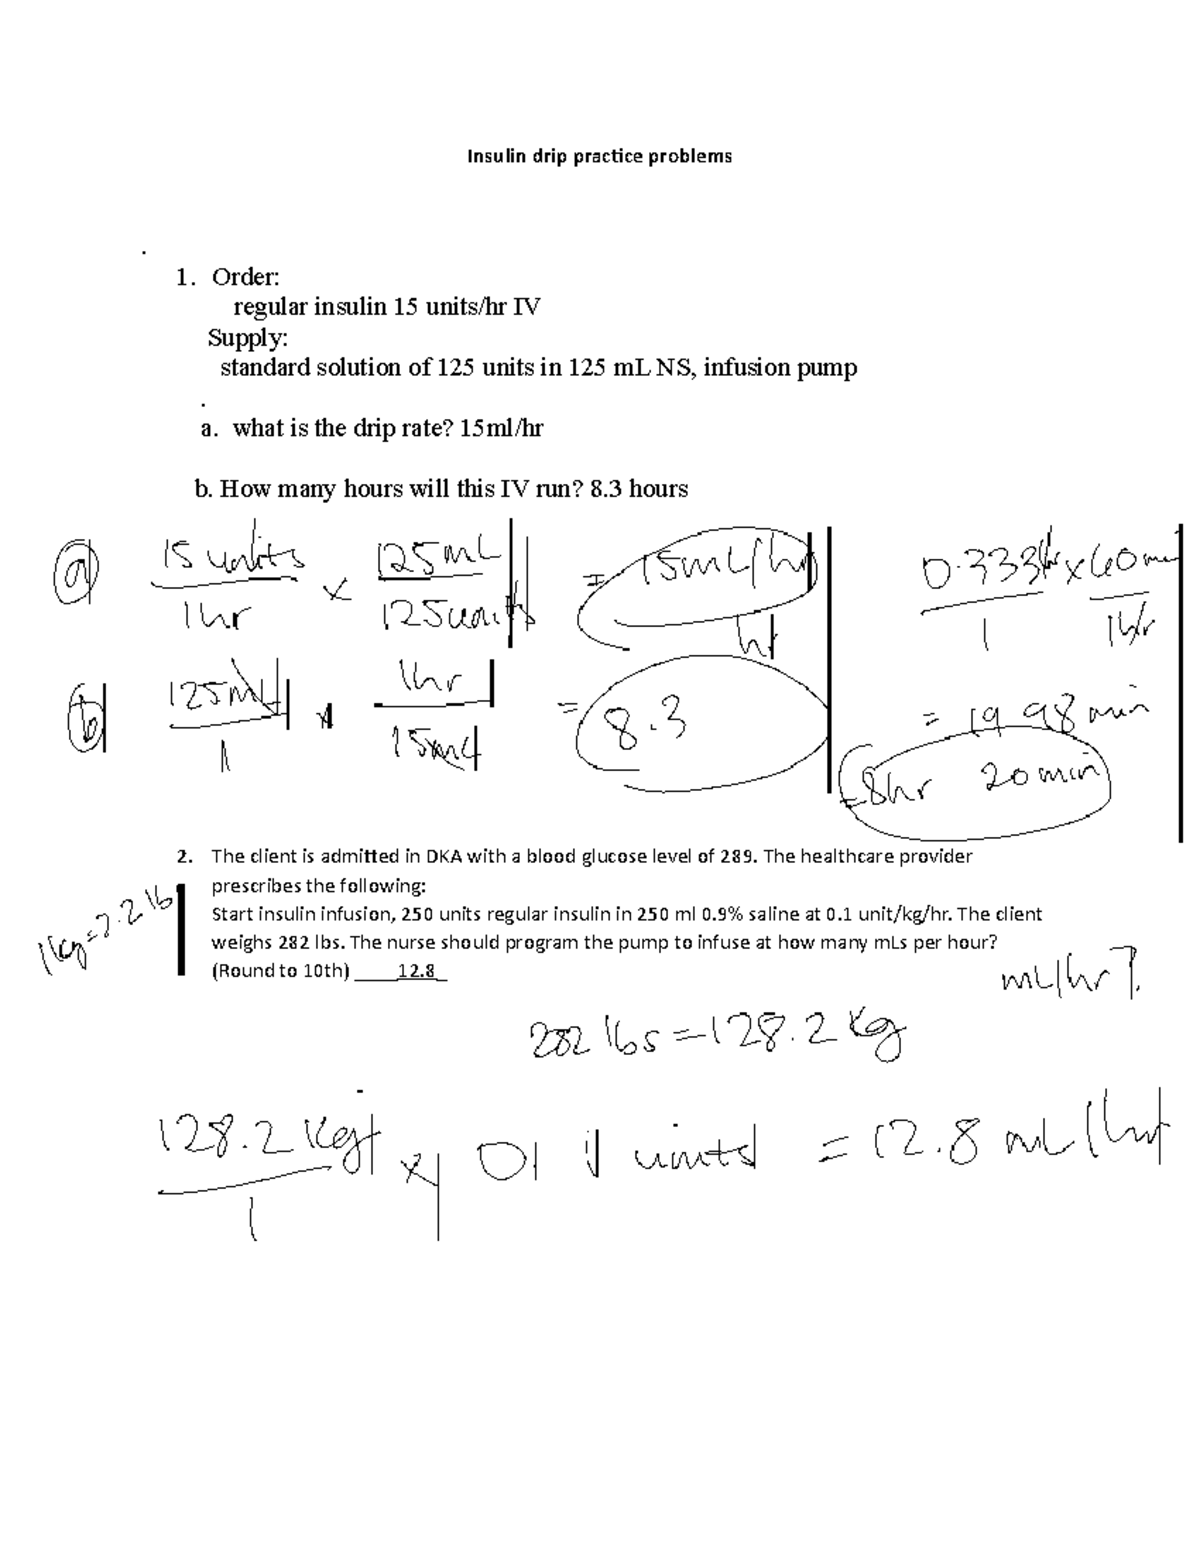 Insulin drip practice problems
.
1. Order:
regular insulin 15 units/hr IV
Supply:
standard solution of 125 units in 125 mL NS, infusion pump
.
a. what is the drip rate? 15ml/hr
b. How many hours will this IV run? 8.3 hours
a) 15 units / 1hr x 125mL / 125units = 15mL/hr
0.333hr / 1 x 60min / 1hr
b) 125mL / 1 x 1hr / 15mL = 8.3 hr
= 19.98 min
= 8hr 20min
2. The client is admitted in DKA with a blood glucose level of 289. The healthcare provider
prescribes the following:
1kg=2.2lb
Start insulin infusion, 250 units regular insulin in 250 ml 0.9% saline at 0.1 unit/kg/hr. The client
weighs 282 lbs. The nurse should program the pump to infuse at how many mLs per hour?
(Round to 10th) ____12.8_
mL/hr?
282 lbs = 128.2 kg
128.2 kg / 1 x units = 12.8 mL/hr